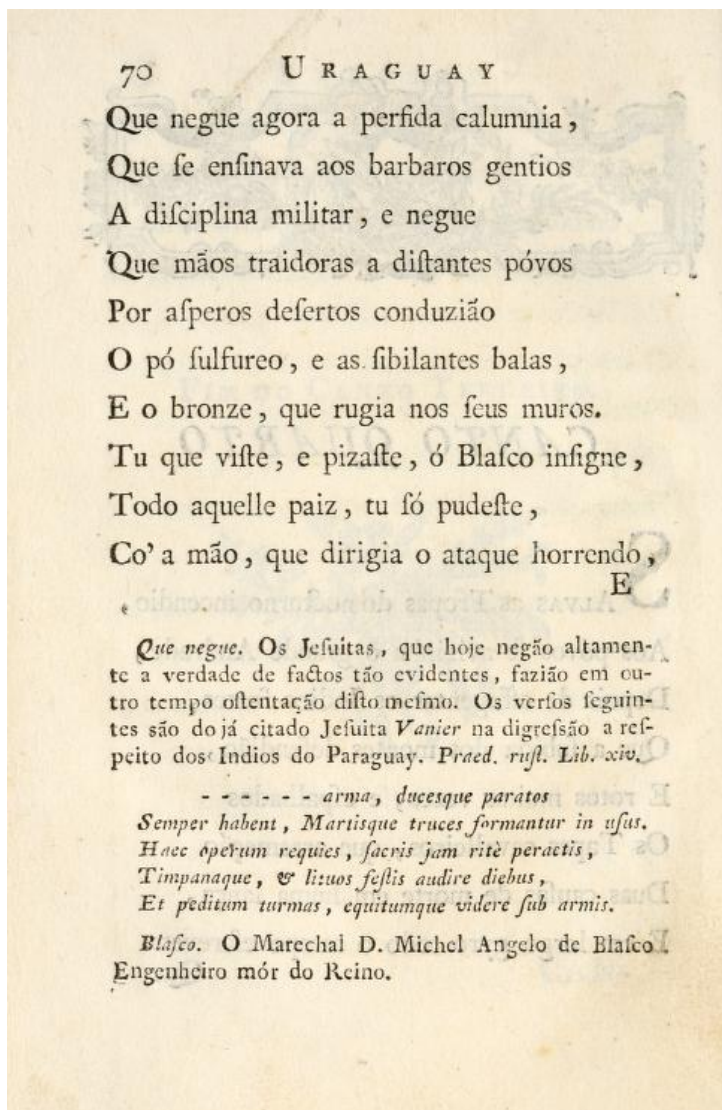 70 URAGUAY
Que negue agora a perfida calumnia,
Que ſe enſinava aos barbaros gentios
A diſciplina militar, e negue
Que mãos traidoras a diſtantes póvos
Por aſperos deſertos conduzião
O pó ſulfureo, e as ſibilantes balas,
E o bronze, que rugia nos ſeus muros.
Tu que viſte, e pizaſte, ó Blaſco inſigne,
Todo aquelle paiz, tu ſó pudeſte,
Co' a mão, que dirigia o ataque horrendo,
E
Que negue. Os Jeſuitas, que hoje negão altamen-
te a verdade de factos tão evidentes, fazião em ou-
tro tempo oſtentação diſto meſmo. Os verſos ſeguin-
tes são do já citado Jeſuita Vanier na digreſsão a reſ-
peito dos Indios do Paraguay. Praed. ruſt. Lib. xiv.
- - - - - - arma, ducesque paratos
Semper habent, Martisque truces formantur in uſus.
Haec operum requies, ſacris jam ritè peractis,
Timpanaque, & lituos feſtis audire diebus,
Et peditum turmas, equitumque videre ſub armis.
Blaſco. O Marechal D. Michel Angelo de Blaſco
Engenheiro mór do Reino.